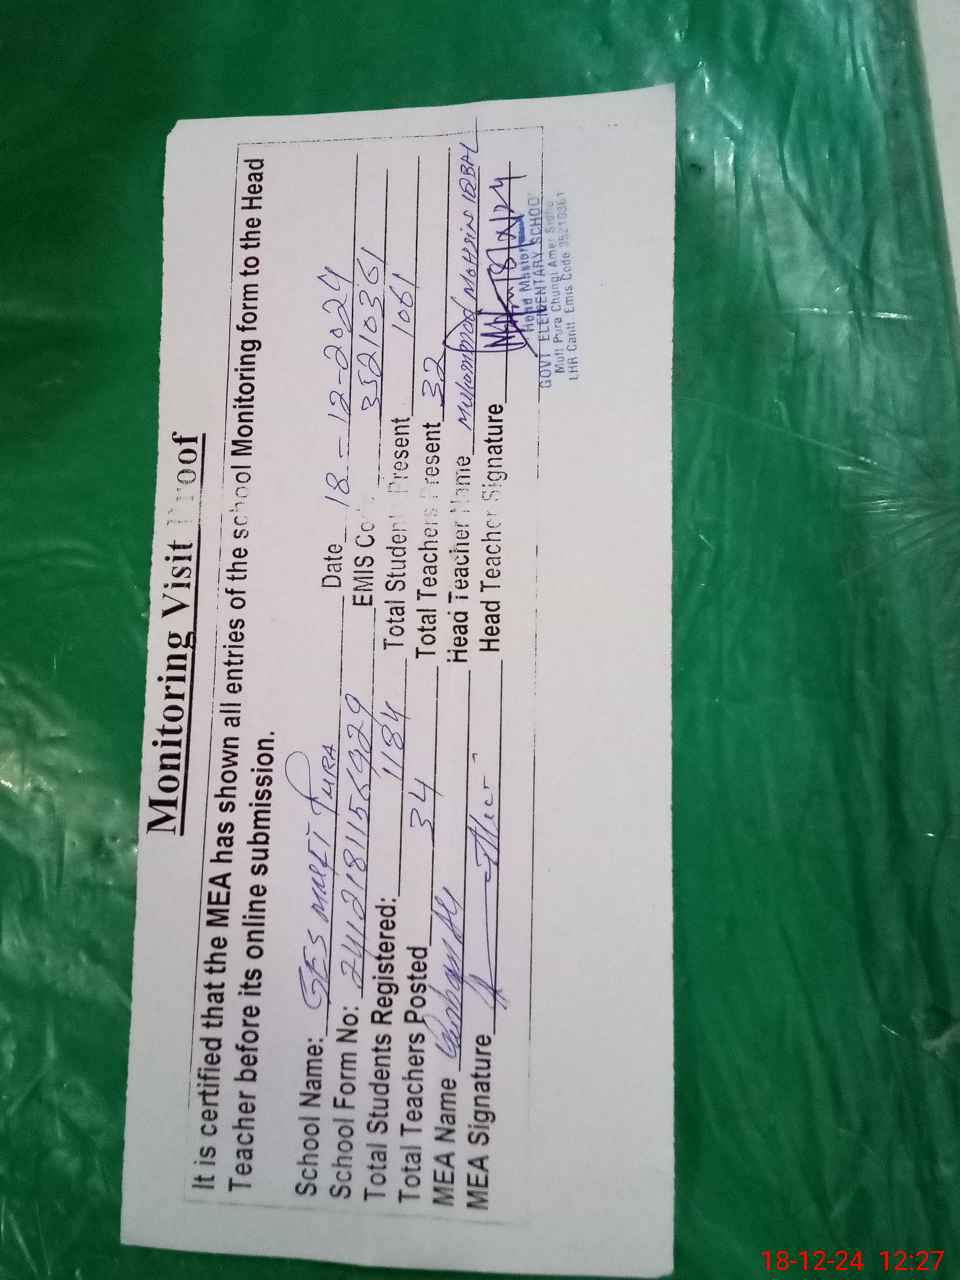 Monitoring Visit Proof
It is certified that the MEA has shown all entries of the school Monitoring form to the Head
Teacher before its online submission.
School Name: GES MUFTI PURA Date 18-12-2024
School Form No: EMIS Co 35210361
Total Students Registered: 1184 Total Student Present 1061
Total Teachers Posted 34 Total Teachers Present 32
MEA Name Head Teacher Name Muhammad Mohsin IQBAL
MEA Signature Head Teacher Signature
Head Master
GOVT ELEMENTARY SCHOOL
Mufti Pura Chungi Amer Sidhu
LHR Cantt. Emis Code 35210361
18-12-24 12:27